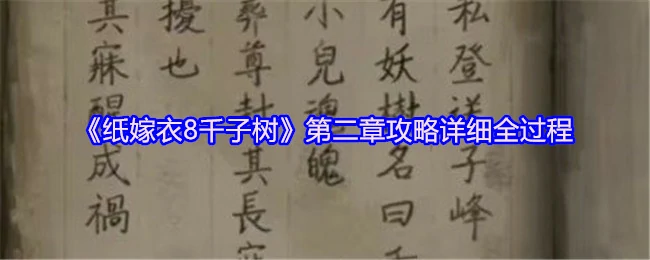 《纸嫁衣8千子树》第二章攻略详细全过程
私登子峰
有妖樹名曰
小兒魂魄
尊封其長
擾也
其寐醒成禍